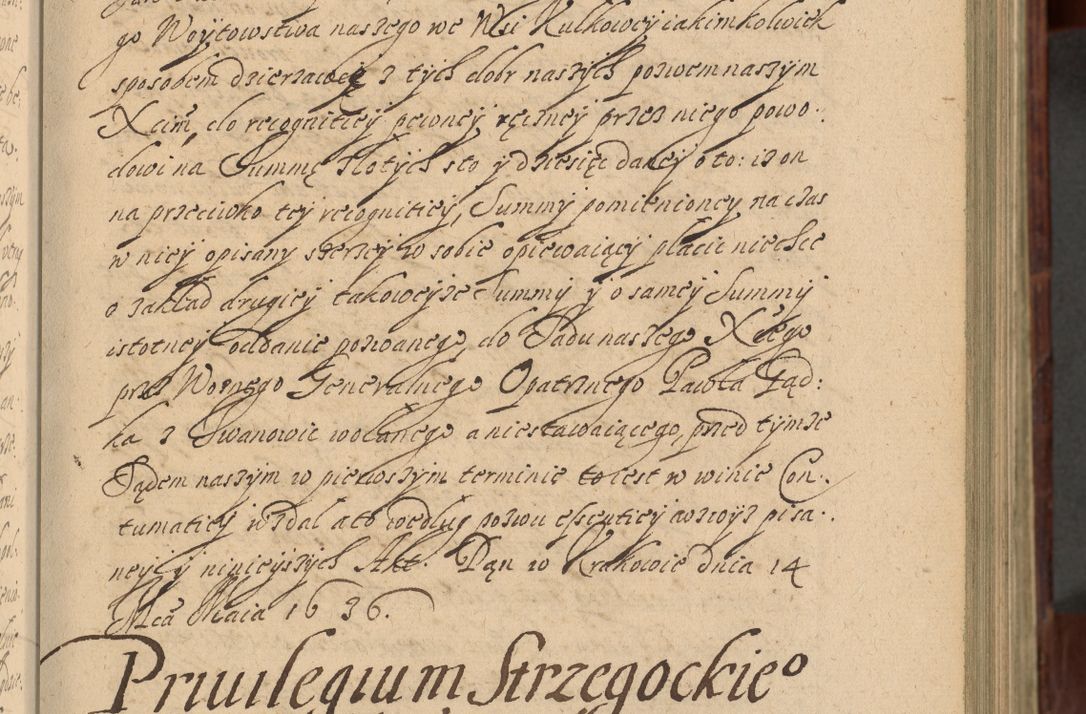 go Woytowstwa naszego we Wsi Kulkowcy iakimkolwiek
sposobem dzierzawcę z tych dobr naszych pozwem naszym
Xcim, do recognitiey pewney ręczney przez niego powo-
dowi na Summę złotych sto y dziesięc daney o to: iz on
na przeciwko tey recognitiey, Summy pomienioney na czas
w niey opisany szerzey w sobie opiewaiący płacic niechce
o zakład drugiey takoweyze Summy y o samey Summy
istotney oddanie pozwanego, do Sądu naszego Xcego
przez Woznego Generalnego Opatrznego Pawła Ząd:
ka z Iwanowic wołanego a niestawaiącego, przed tymze
Sądem naszym w pierwszym terminie to iest w winie Con-
tumaciey wzdał a to według pozwu essentiey a wzwyz pisa-
ney y ninieyszych Akt. Dan w Krakowie dnia 14
Mca Maia 1636.
Priuilegium Strzegockieo